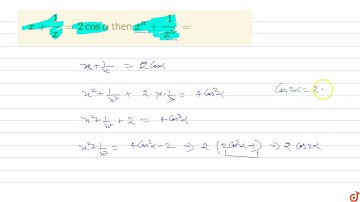 x + 1/x = 2 cos α then xⁿ + 1/xⁿ =
x + 1/x = 2cosα
x² + 1/x² + 2·x·1/x = 4cos²α
cos2α = 2·
x² + 1/x² + 2 = 4cos²α
x² + 1/x² = 4cos²α - 2 ⇒ 2 (2cos²α - 1) ⇒ 2 cos2α